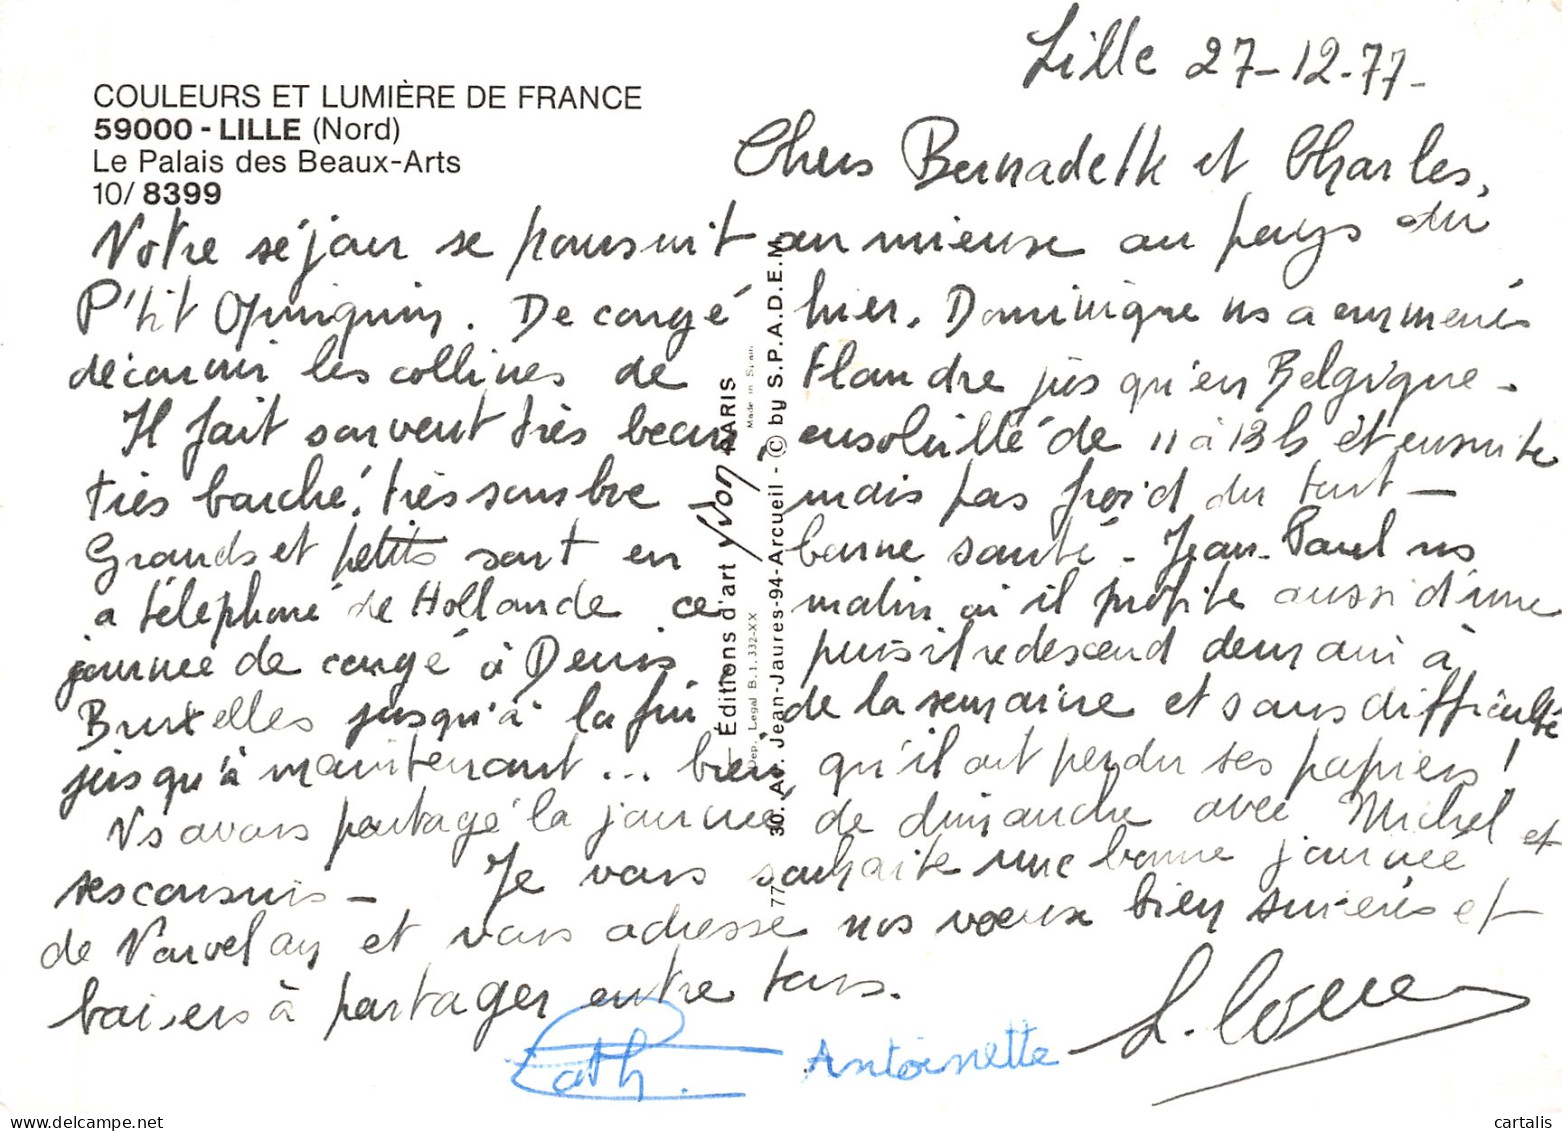 Lille 27-12-77-
COULEURS ET LUMIÈRE DE FRANCE
59000 - LILLE (Nord)
Le Palais des Beaux-Arts
10/ 8399
Chers Bernadette et Charles,
Notre séjour se poursuit au mieux au pays du
P'tit Quinquin. De congé hier, Dominique ns a emmenés
découvrir les collines de Flandre jusqu'en Belgique -
Il fait souvent très beau, ensoleillé de 11 à 13h et ensuite
très bouché, très sombre mais pas froid du tout -
Grands et petits sont en bonne santé - Jean-Paul ns
a téléphoné de Hollande ce matin où il profite aussi d'une
journée de congé à Denis puis il redescend demain à
Bruxelles jusqu'à la fin de la semaine et sans difficulté
jusqu'à maintenant ... bien qu'il ait perdu ses papiers !
Vs avons partagé la journée de dimanche avec Michel et
ses cousins - Je vous souhaite une bonne journée
de Nouvel an et vous adresse nos voeux bien sincères et
baisers à partager entre tous.
Cath. Antoinette
Éditions d'art Yvon PARIS
Dep. Legal B.1.332-XX Made in Spain
77 30. Av. Jean-Jaures-94-Arcueil - © by S.P.A.D.E.M.
delcampe.net
cartalis